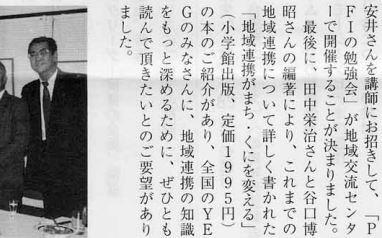 安井さんを講師にお招きして、「P
FIの勉強会」が地域交流センタ
ーで開催することが決まりました。
最後に、田中栄治さんと谷口博
昭さんの編著により、これまでの
地域連携について詳しく書かれた
「地域連携がまち・くにを変える」
（小学館出版、定価1995円）
の本のご紹介があり、全国のYE
Gのみなさんに、地域連携の知識
をもっと深めるために、ぜひとも
読んで頂きたいとのご要望があり
ました。